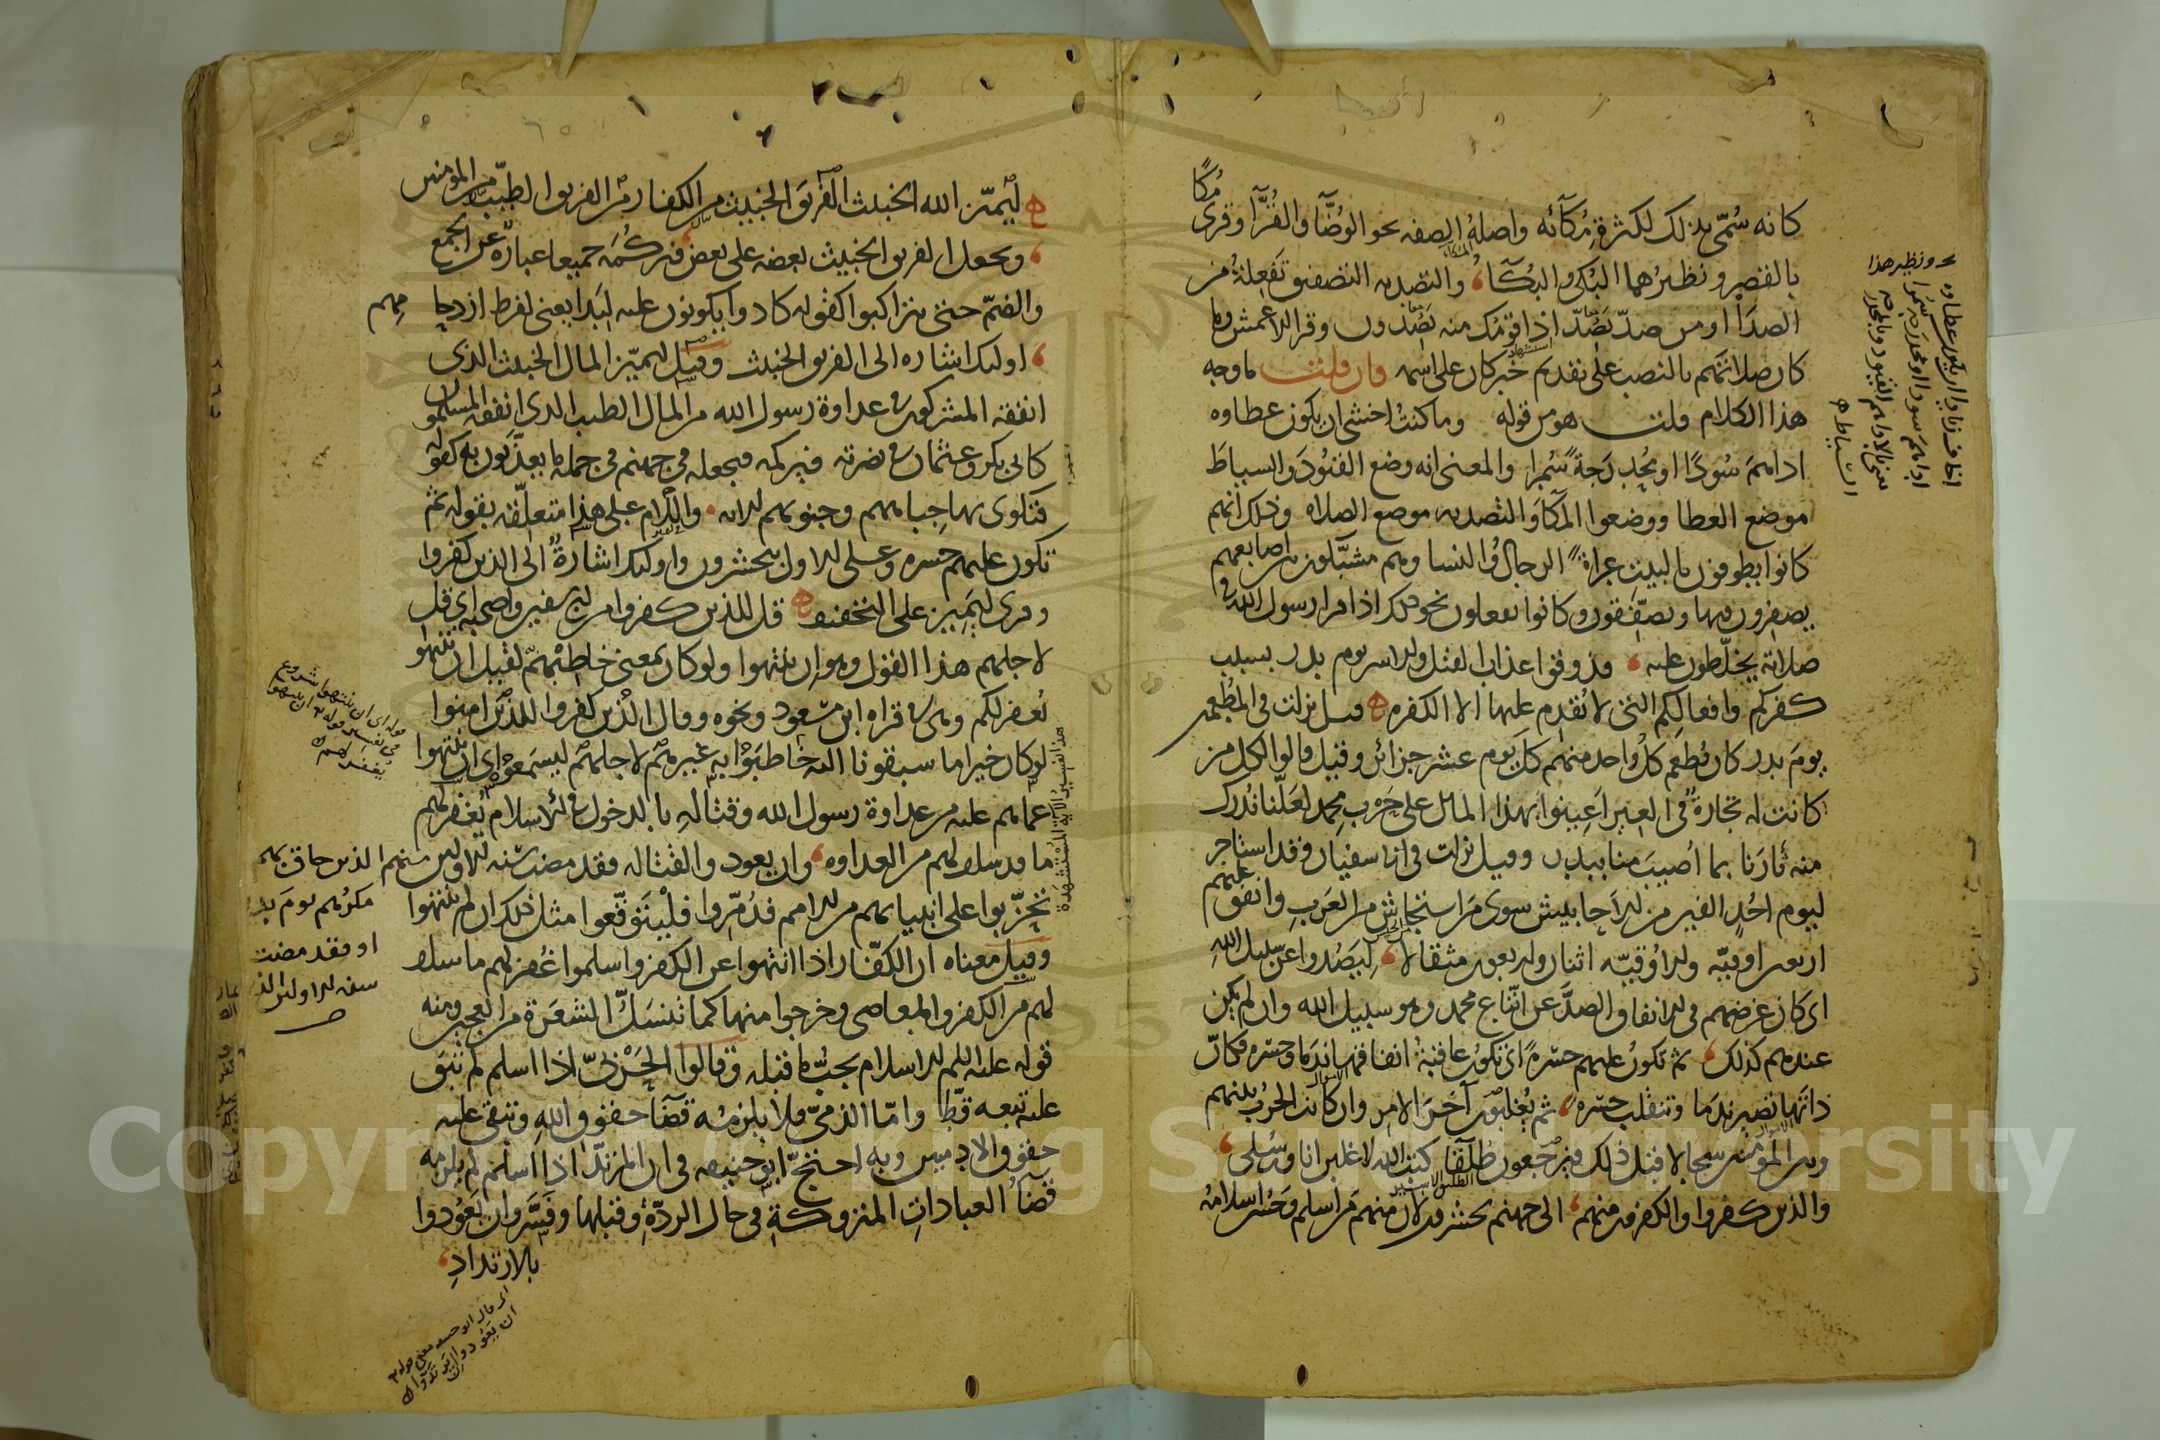 كانه سُمّى بذلك لكثرة مُكآئه واصله الصفه نحو الوُضّآ والقُرّآ وقرى مُكًا
بالقصر ونظيرُهما البُكى والبُكآ والتصديه التصفيق تَفعِلة من
الصدَا او من صدّ يَصُدّ اذا قومك منه يصدون وقرا الاعمش وما
كان صلاتَهم بالنصب على تقديم خبر كان على اسمه فان قلت ما وجه
هذا الكلام قلت هو من قوله وما كنتُ اخشى ان يكون عطاوه
اداهمَ سُودًا او مُحَدرَجةً سُمرا والمعنى انه وضع القيُودَ والسياطَ
موضع العطا ووضعوا المُكآ والتصديه موضع الصلاه وذلك انهم
كانوا يطوفون بالبيت عراة الرجال والنسا وهم مشبّكون بين اصابعهم
يصفِرون فيها ويصفِّقون وكانوا يفعلون نحو ذلك اذا قرا رسول الله في
صلاته يخلّطون عليه فذوقوا عذاب القتل والاسر يوم بدر بسبب
كفركم وافعالِكم التى لا يُقدِم عليها الا الكفره قيل نزلت فى المطعمين
يومَ بدر كان يُطعِم كل واحد منهم كل يوم عشر جزائر وقيل قالوا لكل من
كانت له تجارة فى العير اَعِينوا بهذا المال على حَرب محمد لعَلّنا نُدرك
منه ثارَنا بما اُصيبَ منا ببدر وقيل نزلت فى ابى سفيان وقد استاجر
ليوم اُحُدٍ الفين من الاَحابيش سوى مَن استجاش من العَرَبِ وانفق عليهم
اربعين اوقيّه والاُوقيّه اثنان واربعون مثقالا لِيَصُدوا عن سبيل الله
اى كان غرضهم فى الانفاق الصدَّ عن اتّباع محمد وهو سبيل الله وان لم يكن
عندهم كذلك ثم تكونُ عليهم حسرةً اى تكونُ عاقبة انفاقها ندما وحسره فكانّ
ذاتَها تصير ندما وتنقلب حسره ثم يُغلبون آخرَ الامر وان كانت الحَرب بينهم
وبين المؤمنين سِجالا قبل ذلك فيرجَعون طُلَقَآ كتب الله لاغلبن انا ورسلى
والذين كفروا والكافرون منهم الى جهنم يحشرون لان منهم من اسلم وحَسُن اسلامه
نحو ونظير هذا
ليَميز الله الخبيث الفريقَ الخبيث من الكفار من الفريق الطيّب من المؤمنين
ويجعل الفريق الخبيث بعضه على بعض فيركُمَه جميعا عبارة عن الجمع
والضمّ حتى يتراكبوا كقوله كادوا يكونون عليه لِبَدا يعنى لفرط ازدحامهم
اولئك اشاره الى الفريق الخبيث وقيل ليميز المال الخبيث الذى
انفقه المشركون فى عداوة رسول الله من المال الطيب الذى انفقه المسلمون
كابى بكر وعثمان فى نصرته فيركمه فيجعله فى جهنم فى جملة ما يعذّبون به كقوله
فتكوى بها جباههم وجنوبهم الايه واللام على هذا متعلّقه بقوله ثم
تكون عليهم حسره وعلى الاول بيحشرون واولئك اشارةٌ الى الذين كفروا
وقرى ليَميز على التخفيف قل للذين كفروا من ابى سفين واصحابه اى قل
لاجلهم هذا القول وهو ان ينتهوا ولو كان بمعنى خاطِبْهم لقيل ان تنتهوا
نغفر لكم وهى فى قراة ابن مسعود ونحوه وقال الذين كفروا للذين امنوا
لو كان خيرا ما سبقونا اليه خاطبَوا به غيرهم لاجلهم ليسمعوه اى ان ينتهوا
عما هم عليه من عداوة رسول الله وقتاله بالدخول فى الاسلام يُغفر لهم
ما قد سلف لهم من العداوه وان يعودوا لقتاله فقد مضت سنه الاولين منهم الذين حاق بهم
مكرُهم يومَ بدر
او فقد مضت
سنه الاولين الذين
تحزّبوا على انبيائهم من الامم فدُمّروا فلْيَتَوقّعوا مثل ذلك ان لم ينتهوا
وقيل معناه ان الكفّار اذا انتهوا عن الكفر واسلموا غُفر لهم ما سلف
لهم من الكفر والمعاصى وخرجوا منها كما تنسَلُّ الشعَرة من العجين ومنه
قوله عليه السلم الاسلام يجبُّ ما قبله وقالوا الحَرْبىّ اذا اسلم لم تبقَ
عليه تبعه قط واما الذمىّ فلا يلزمه قضآ حقوق الله وتبقى عليه
حقوق الادميين وبه احتجّ ابو حنيفه فى ان المرتدّ اذا اسلم لم يلزمه
قضآ العبادات المتروكة فى حال الردّة وقبلها وفَسّر وان يَعُودوا
بالارتدادِ
Copyright © King Saud University